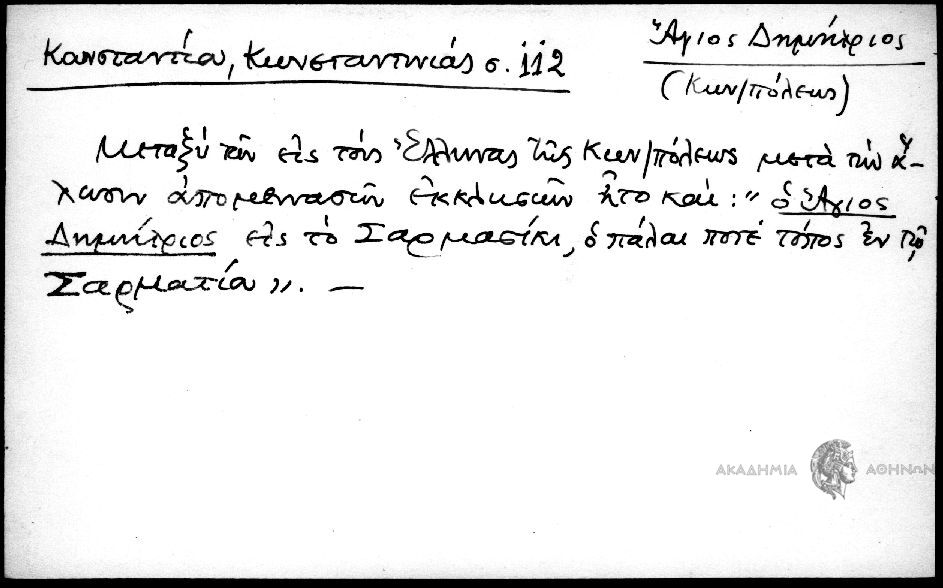 Κωνσταντίου, Κωνσταντινιάς σ. 112
Ἅγιος Δημήτριος
(Κων/πόλεως)
Μεταξὺ τῶν εἰς τοὺς Ἕλληνας τῆς Κων/πόλεως μετὰ τὴν ἅ-
λωσιν ἀπομεινασῶν ἐκκλησιῶν ἦτο καὶ: " ὁ Ἅγιος
Δημήτριος εἰς τὸ Σαρμασίκι, ὁ πάλαι ποτὲ τόπος ἐν τῷ
Σαρματίᾳ ". —
ΑΚΑΔΗΜΙΑ ΑΘΗΝΩΝ